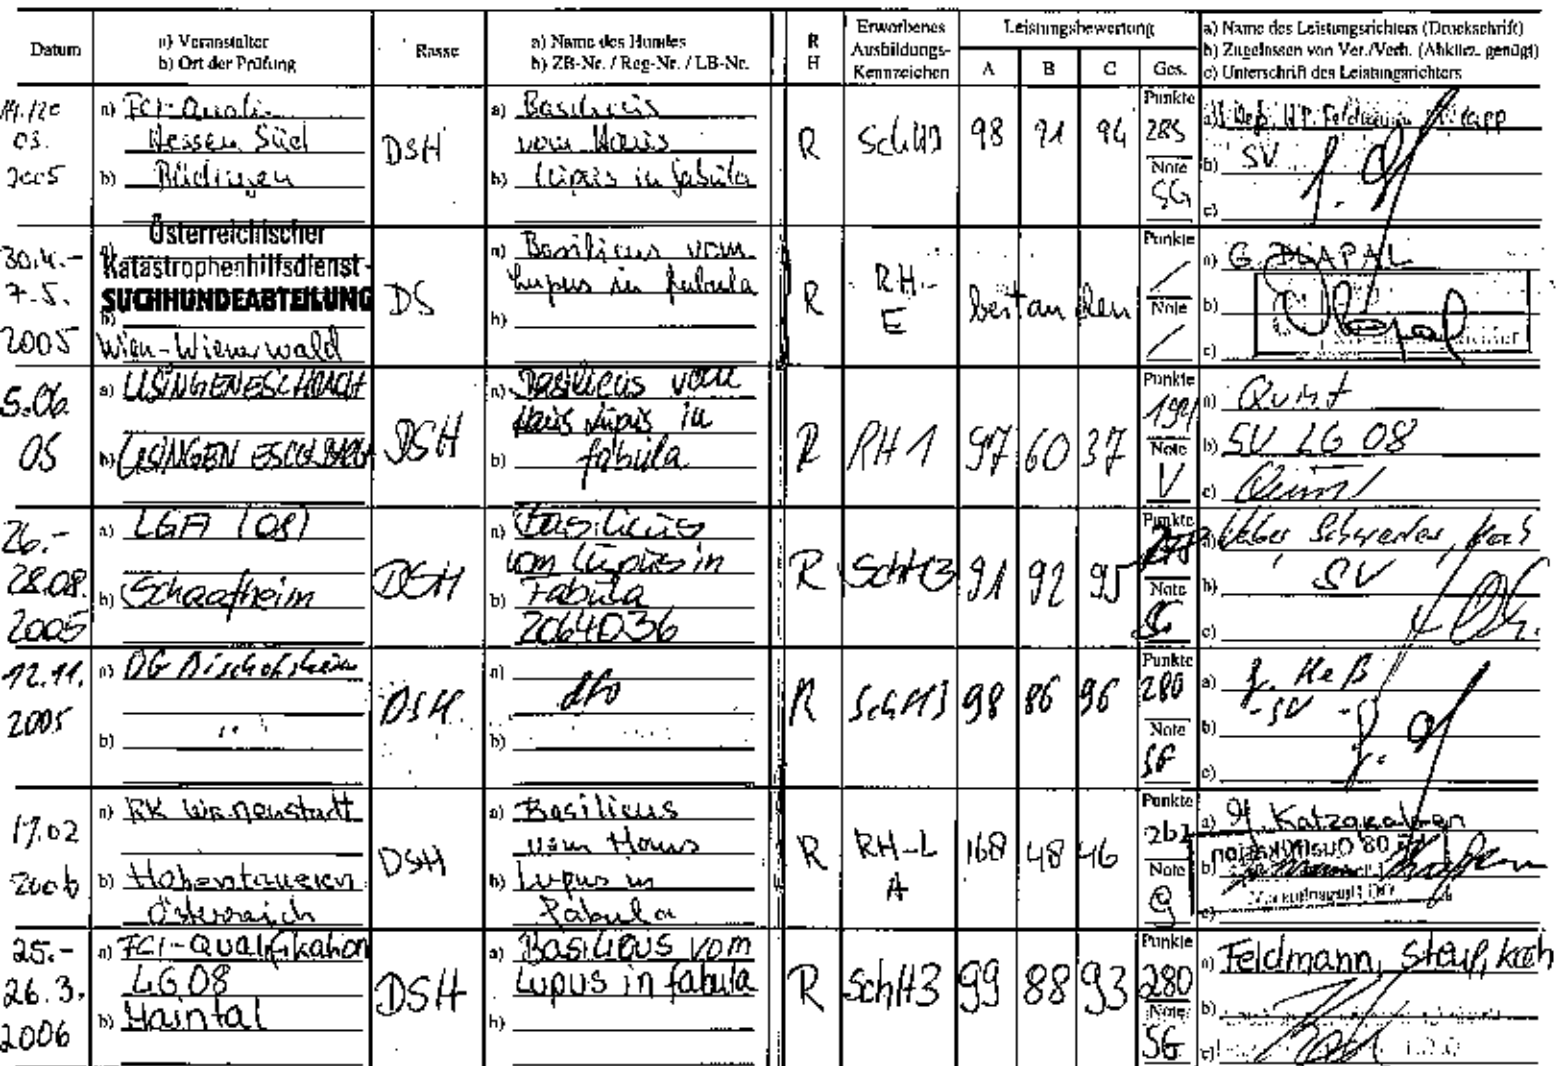 Datum
a) Veranstalter
b) Ort der Prüfung
Rasse
a) Name des Hundes
b) ZB-Nr. / Reg-Nr. / LB-Nr.
R
H
Erworbenes
Ausbildungs-
Kennzeichen
Leistungsbewertung
A B C Ges.
a) Name des Leistungsrichters (Druckschrift)
b) Zugelassen von Ver./Verb. (Abkürz. genügt)
c) Unterschrift des Leistungsrichters
19./20
03.
2005
a) FCI-Quali-
Hessen Süd
b) Büdingen
DSH
a) Basilicus
vom Haus
b) Lupus in fabula
R
SchH3
98 91 94
Punkte
283
Note
SG
a)
b) SV
c)
30.4.-
7.5.
2005
Österreichischer
Katastrophenhilfsdienst-
SUCHHUNDEABTEILUNG
b)
Wien-Wienerwald
DS
a) Basilicus vom
Lupus in fabula
b)
R
RH-
E
bestanden
Punkte
/
Note
/
a) G.
b)
c)
5.06
05
a) USINGEN ESCHBACH
b) USINGEN ESCHBACH
DSH
a) Basilicus vom
Haus Lupus in
b) fabula
R
RH 1
97 60 37
Punkte
194
Note
V
a)
b) SV LG 08
c)
26.-
28.08.
2005
a) LGA (08)
b) Schaafheim
DSH
a) Basilicus
vom Lupus in
b) Fabula
2064036
R
SchH3
91 92 95
Punkte
278
Note
SG
a)
b) SV
c)
12.11.
2005
a) OG Bischofsheim
b)
DSH
a) dto
b)
R
SchH3
98 86 96
Punkte
280
Note
SG
a) J. Heß
- SV -
b)
c)
17.02
2006
a) RK Wr. Neustadt
b) Hohentauern
Österreich
DSH
a) Basilicus
vom Haus
b) Lupus in
Fabula
R
RH-L
A
168 48 46
Punkte
262
Note
g
a)
b)
c)
25.-
26.3.
2006
a) FCI-Qualifikation
LG 08
b) Maintal
DSH
a) Basilicus vom
Lupus in fabula
b)
R
SchH3
99 88 93
Punkte
280
Note
SG
a) Feldmann, Staup, Koch
b)
c)